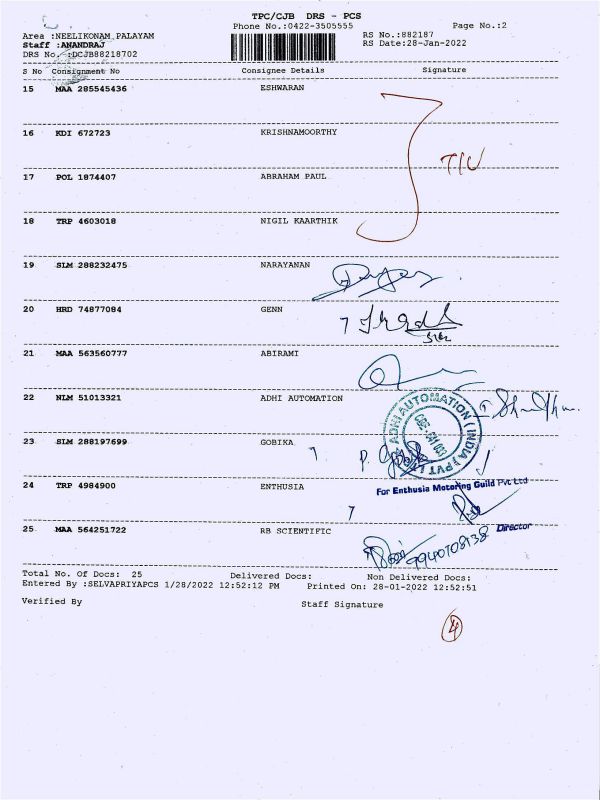 TPC/CJB DRS - PCS
Phone No.:0422-3505555 Page No.:2
Area :NEELIKONAM PALAYAM RS No.:882187
Staff :ANANDRAJ RS Date:28-Jan-2022
DRS No. :DCJB88218702
S No Consignment No Consignee Details Signature
15 MAA 285545436 ESHWARAN
16 KDI 672723 KRISHNAMOORTHY
17 POL 1874407 ABRAHAM PAUL
18 TRP 4603018 NIGIL KAARTHIK
19 SLM 288232475 NARAYANAN
20 HRD 74877084 GENN
21 MAA 563560777 ABIRAMI
22 NLM 51013321 ADHI AUTOMATION
ADHI AUTOMATION (INDIA) PVT
23 SLM 288197699 GOBIKA
24 TRP 4984900 ENTHUSIA
For Enthusia Motoring Guild Pvt Ltd
Director
25 MAA 564251722 RB SCIENTIFIC
9940708138
Total No. Of Docs: 25 Delivered Docs: Non Delivered Docs:
Entered By :SELVAPRIYAPCS 1/28/2022 12:52:12 PM Printed On: 28-01-2022 12:52:51
Verified By Staff Signature
4